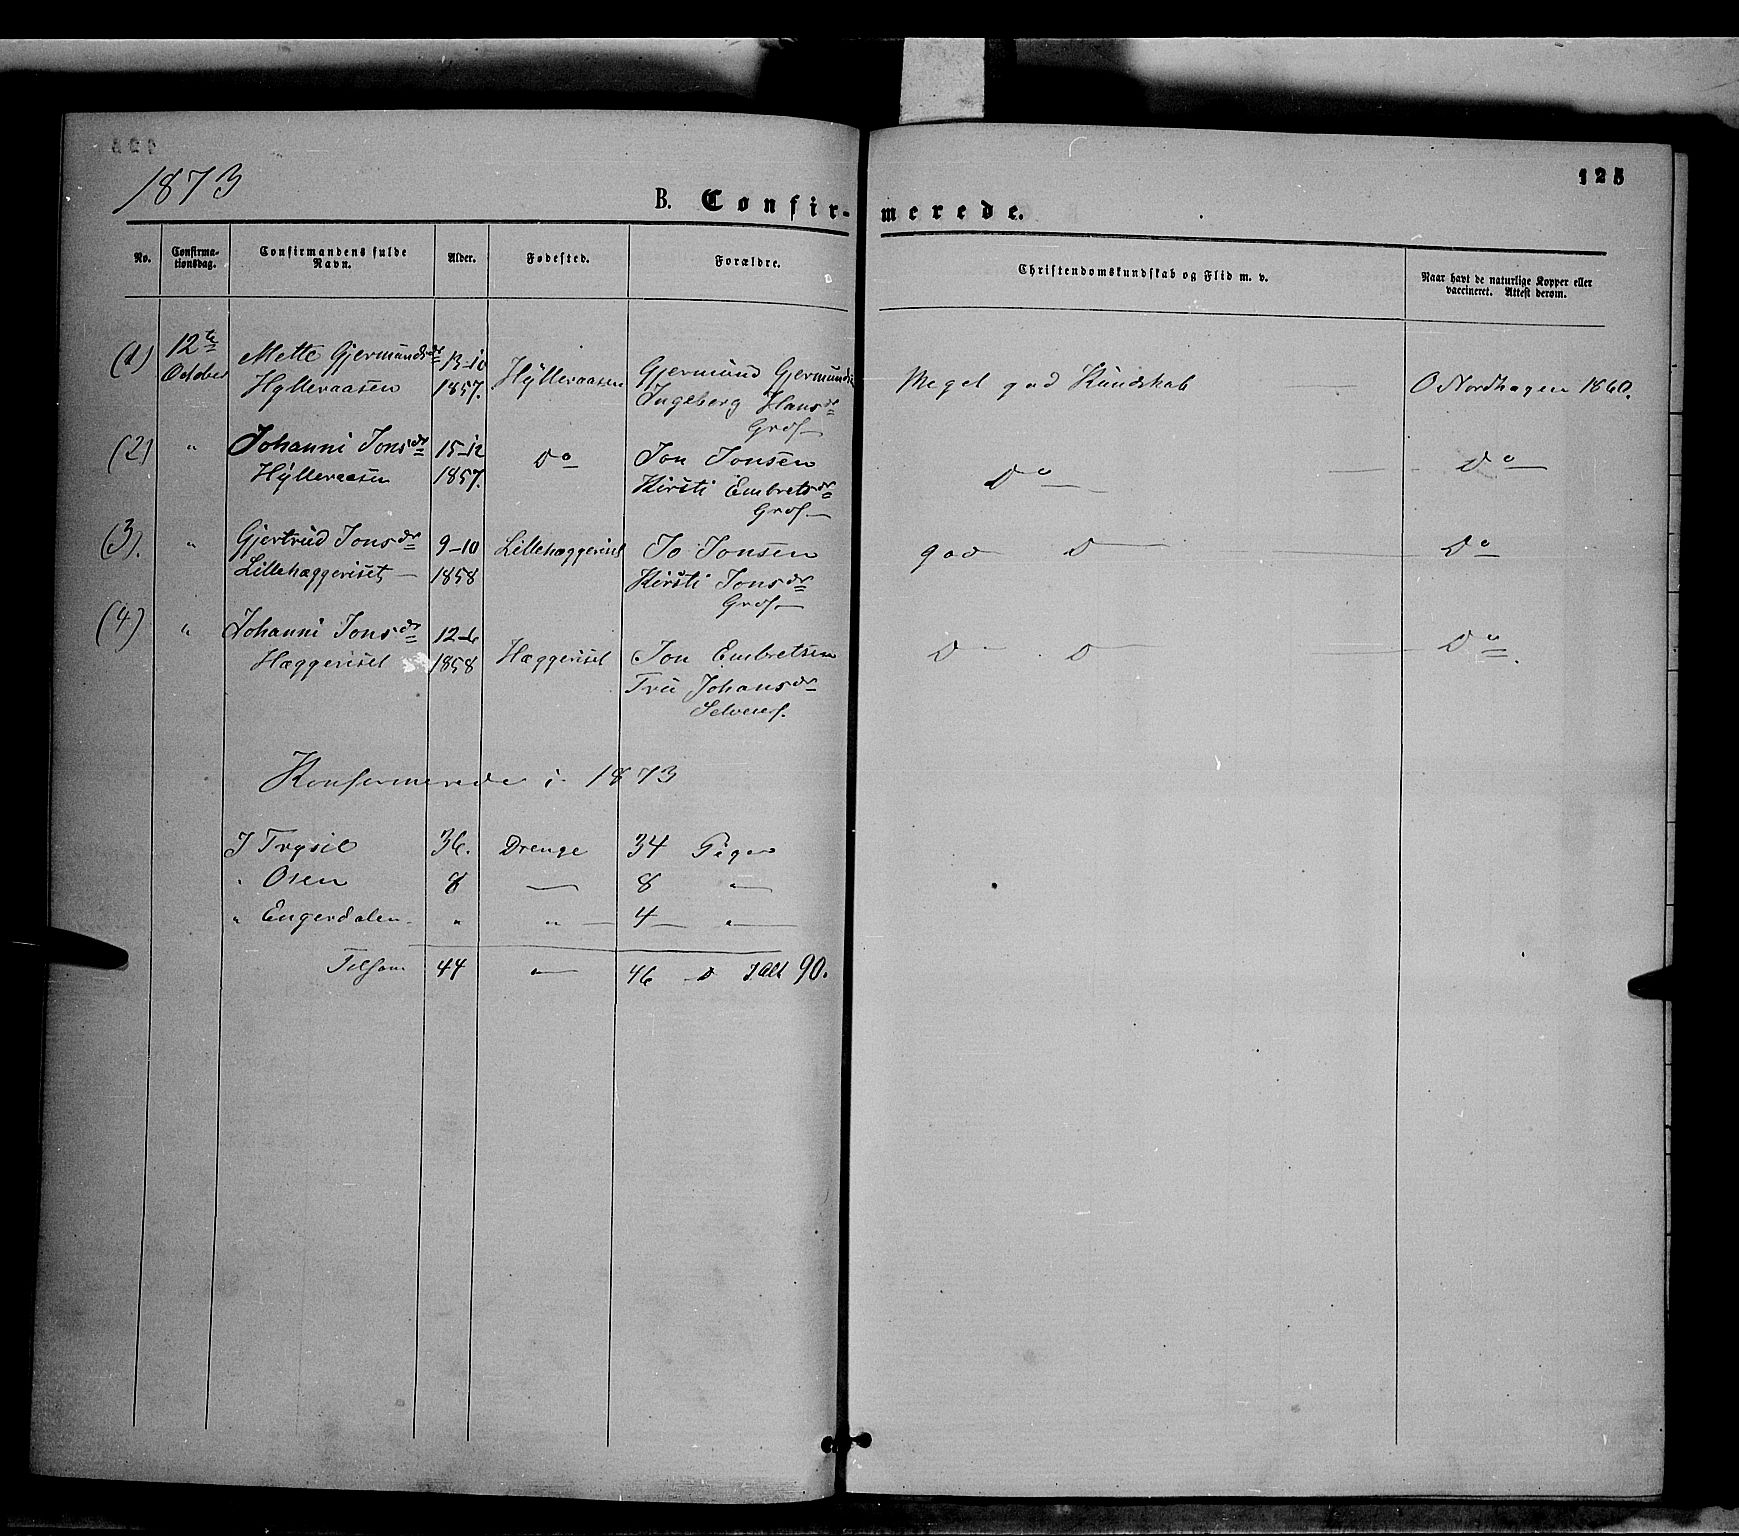 1873
125
B. Confir-merede.
No.
Confirma-
tionsdag.
Confirmandens fulde
Navn.
Alder.
Fødested.
Forældre.
Christendomskundskab og Flid m. v.
Naar havt de naturlige Kopper eller
vaccineret. Attest derom.
(1) 12te Mette Gjermundsdr 13-10 Hÿlleraasen Gjermund Gjermunds Meget god Kundskab — O Nordhagen 1860.
October Hylleraasen 1857. Ingeberg Hansdr
Grdf
(2) " Johanni Jonsdr 15-12 Do Jon Jonsen Do — Do
Hÿlleraasen 1857. Kirsti Embretsdr
Grdf
(3). " Gjertrud Jonsdr 9-10 Lillehæggeriset Jo Jonsen god D — Do
Lillehæggeriset 1858 Kirsti Jonsdr
Grdf
(4) " Johanni Jonsdr 12-6 Hæggeriset Jon Embretsen D D — Do
Hæggeriset 1858 Tru Johansdr
Selveierf.
Konfirmerede i 1873
I Trysil 36. Drenge 34 Piger
" Osen 8 — 8 "
" Engerdalen " " 4 "
Tilsam 44 " 46 D Ialt 90.